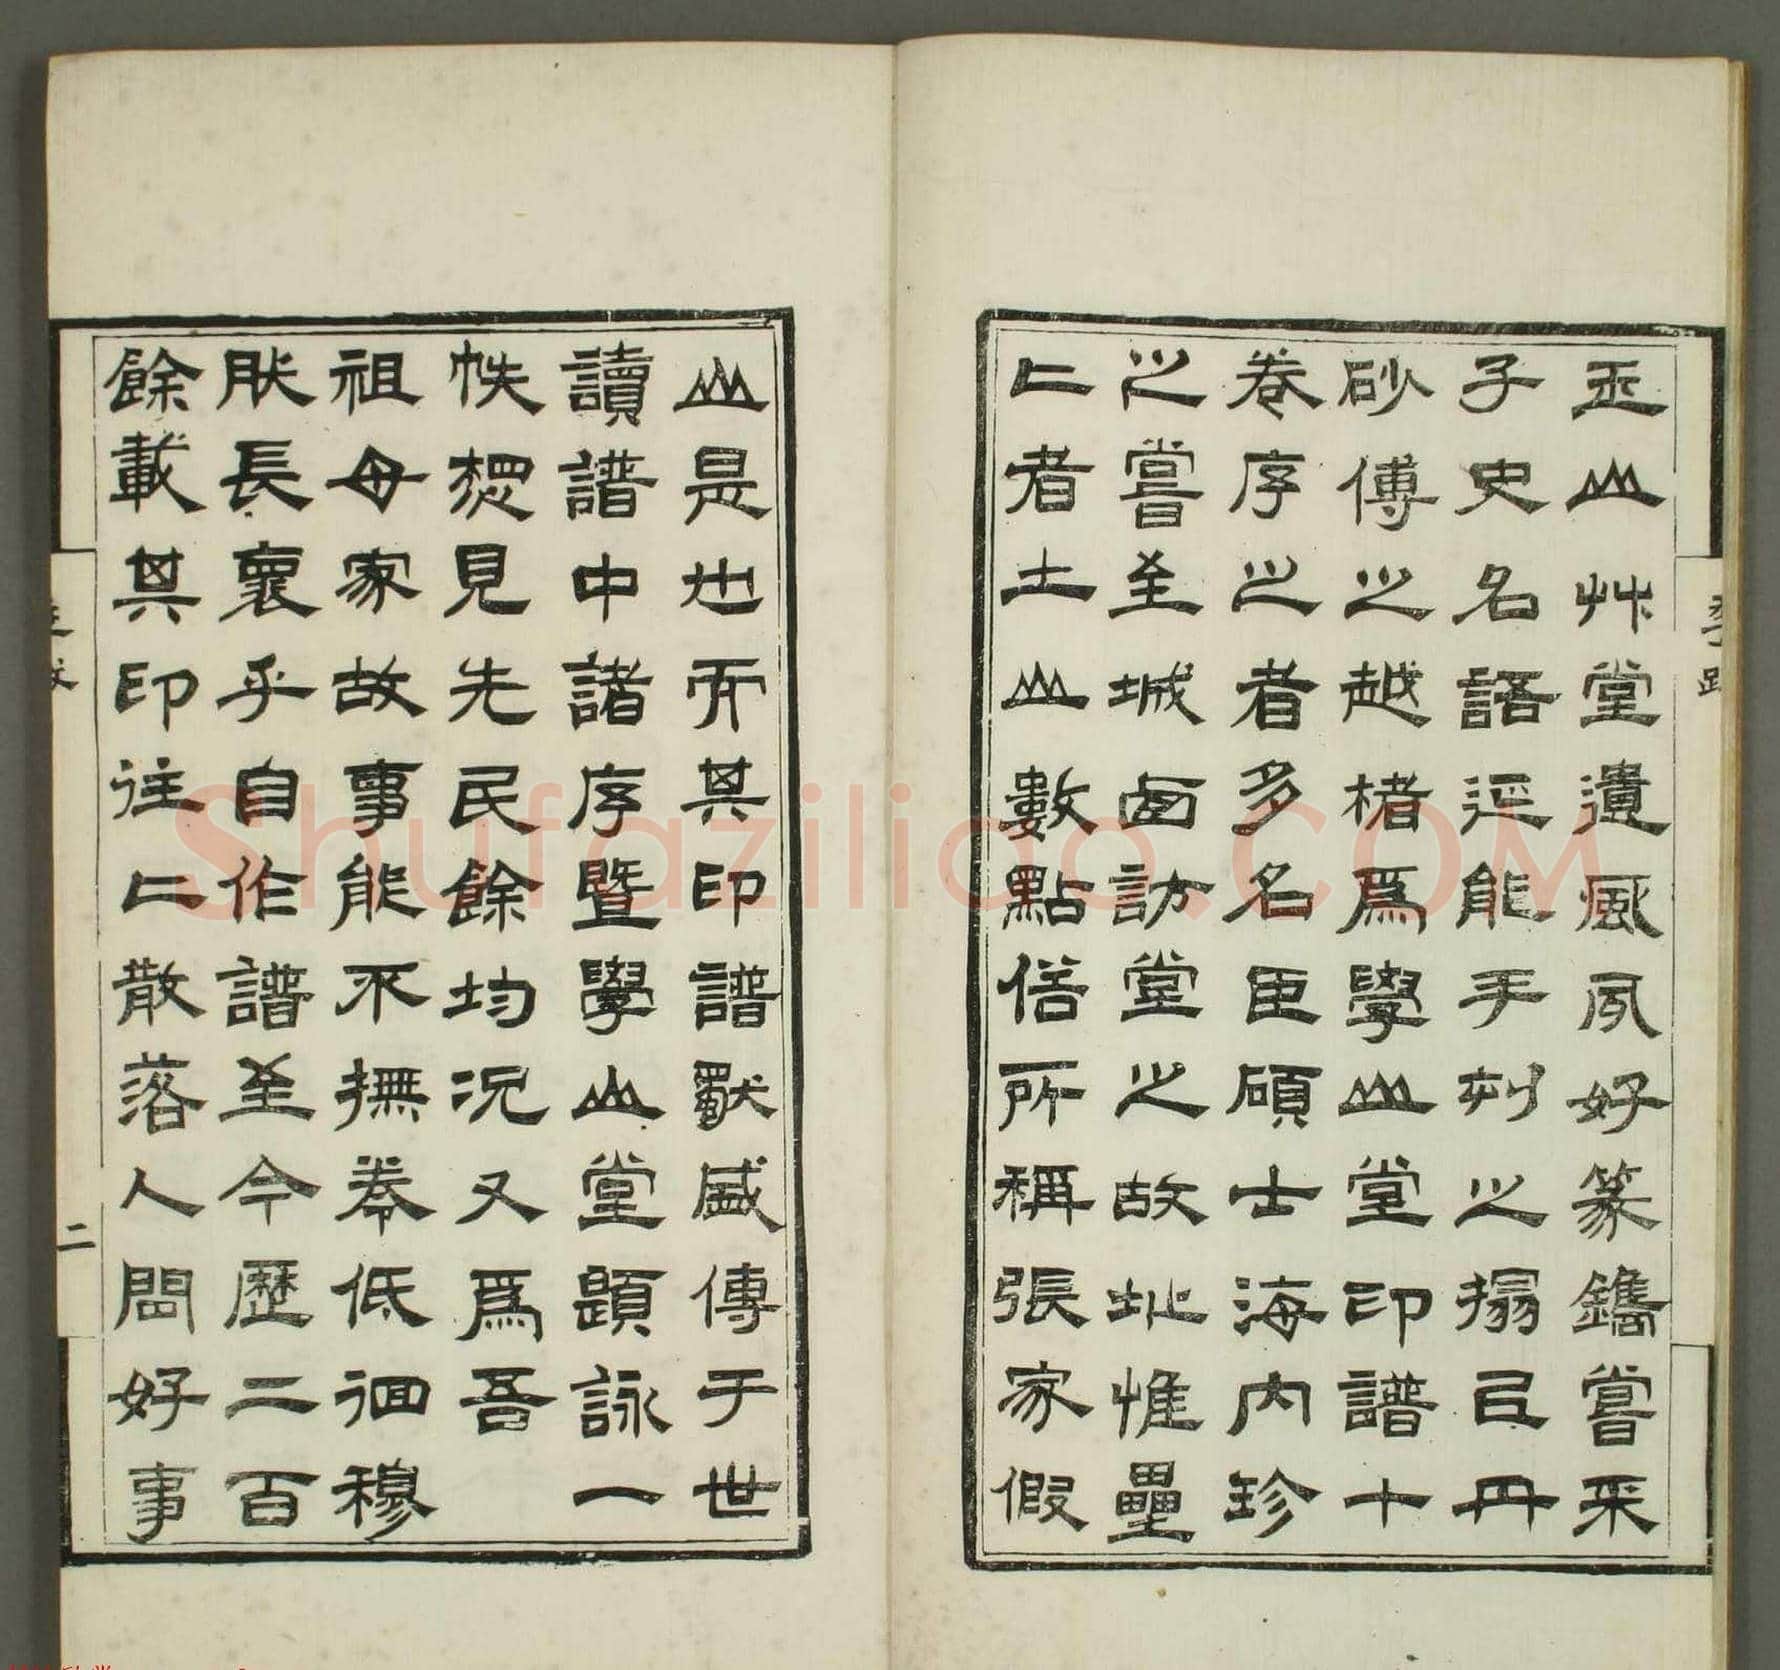 玉山艸堂遺風夙好篆鐫嘗采
子史名語逕能手刻之搨㠯丹
砂傅之越楮爲學山堂印譜十
卷序之者多名臣碩士海内珍
之嘗至城西訪堂之故址惟壘
石者土山數點俗所稱張家假
山是也而其印譜猷盛傳于世
讀譜中諸序暨學山堂題詠一
帙想見先民餘均況又爲吾
祖母家故事能不撫卷低徊穆
肰長裏乎自作譜至今歷二百
餘載其印往二散落人間好事
二
Shufaziliao.COM